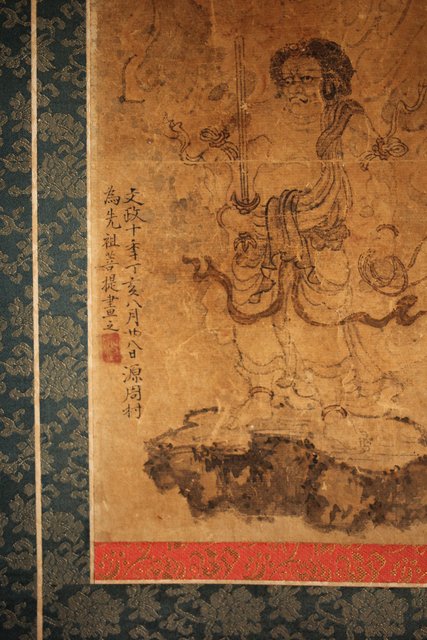 文政十年丁亥八月廿八日 源周村
為先祖菩提畫之